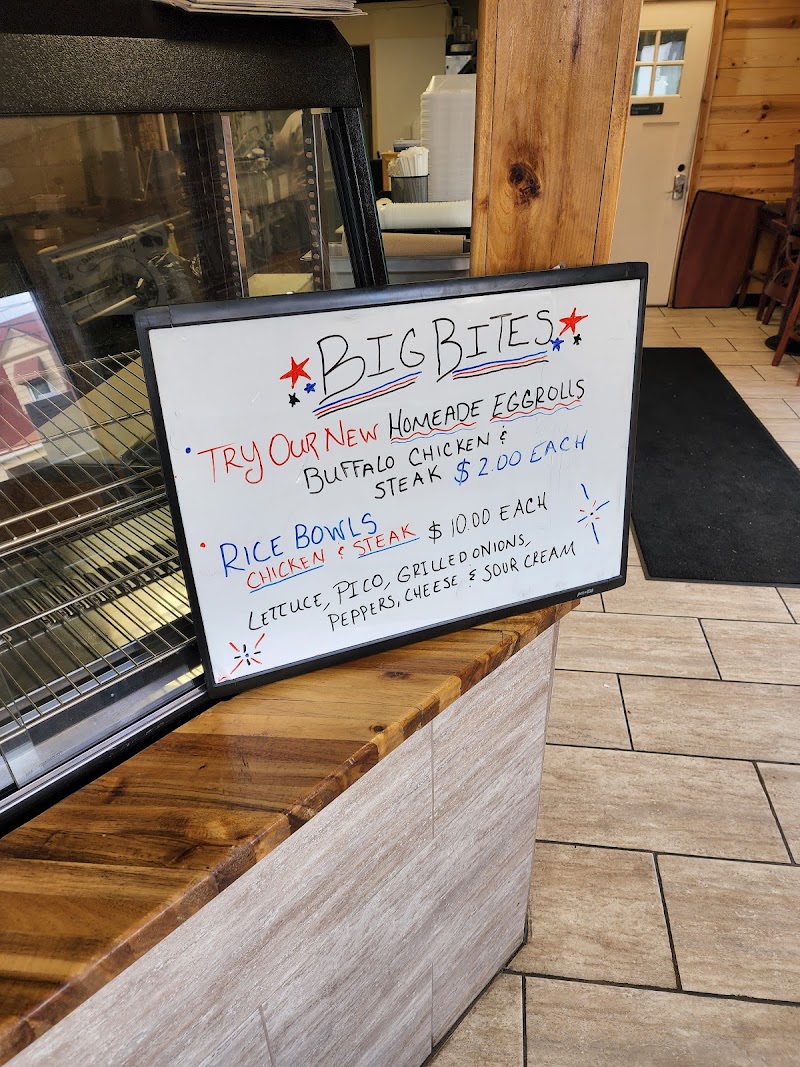 BIG BITES
• TRY OUR NEW HOMEADE EGGROLLS
BUFFALO CHICKEN &
STEAK $2.00 EACH
• RICE BOWLS
CHICKEN & STEAK $10.00 EACH
LETTUCE, PICO, GRILLED ONIONS,
PEPPERS, CHEESE & SOUR CREAM